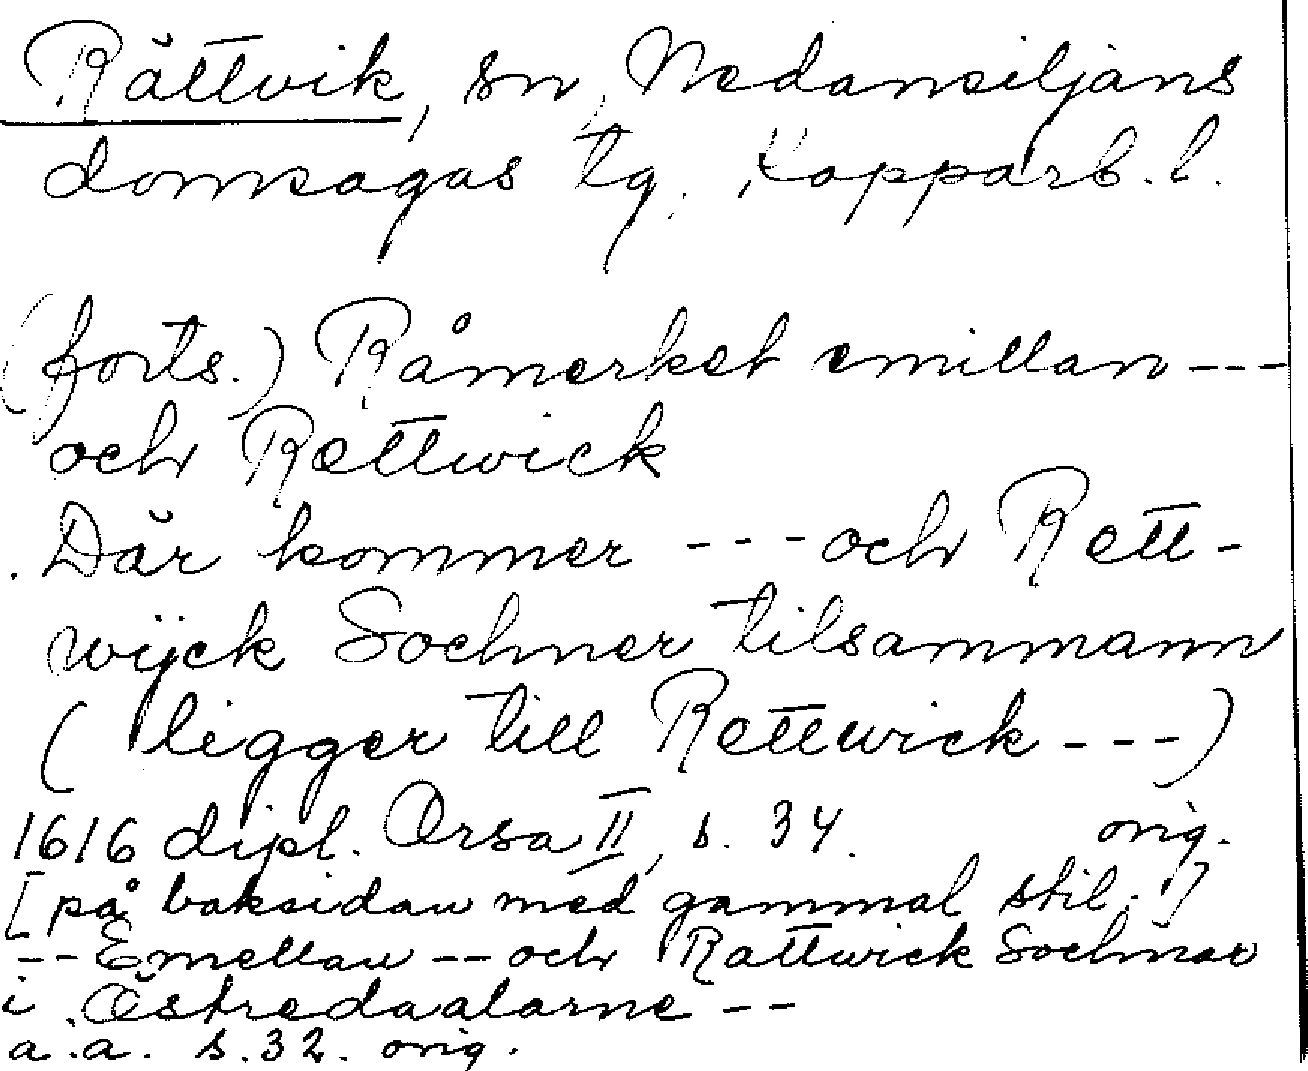 Rättvik, sn, Nedansiljans
domsagas tg. Kopparb. l.
(forts.) Råmerket emillan ---
och Rettwick
Där kommer --- och Rett-
wijck Sochner tilsammann
( ligger till Rettwick --- )
1616 dipl. Orsa II, s. 34. orig.
[på baksidan med gammal stil:]
-- Emellan -- och Rattwick Sochnar
i Östredaalarne --
a.a. s. 32. orig.